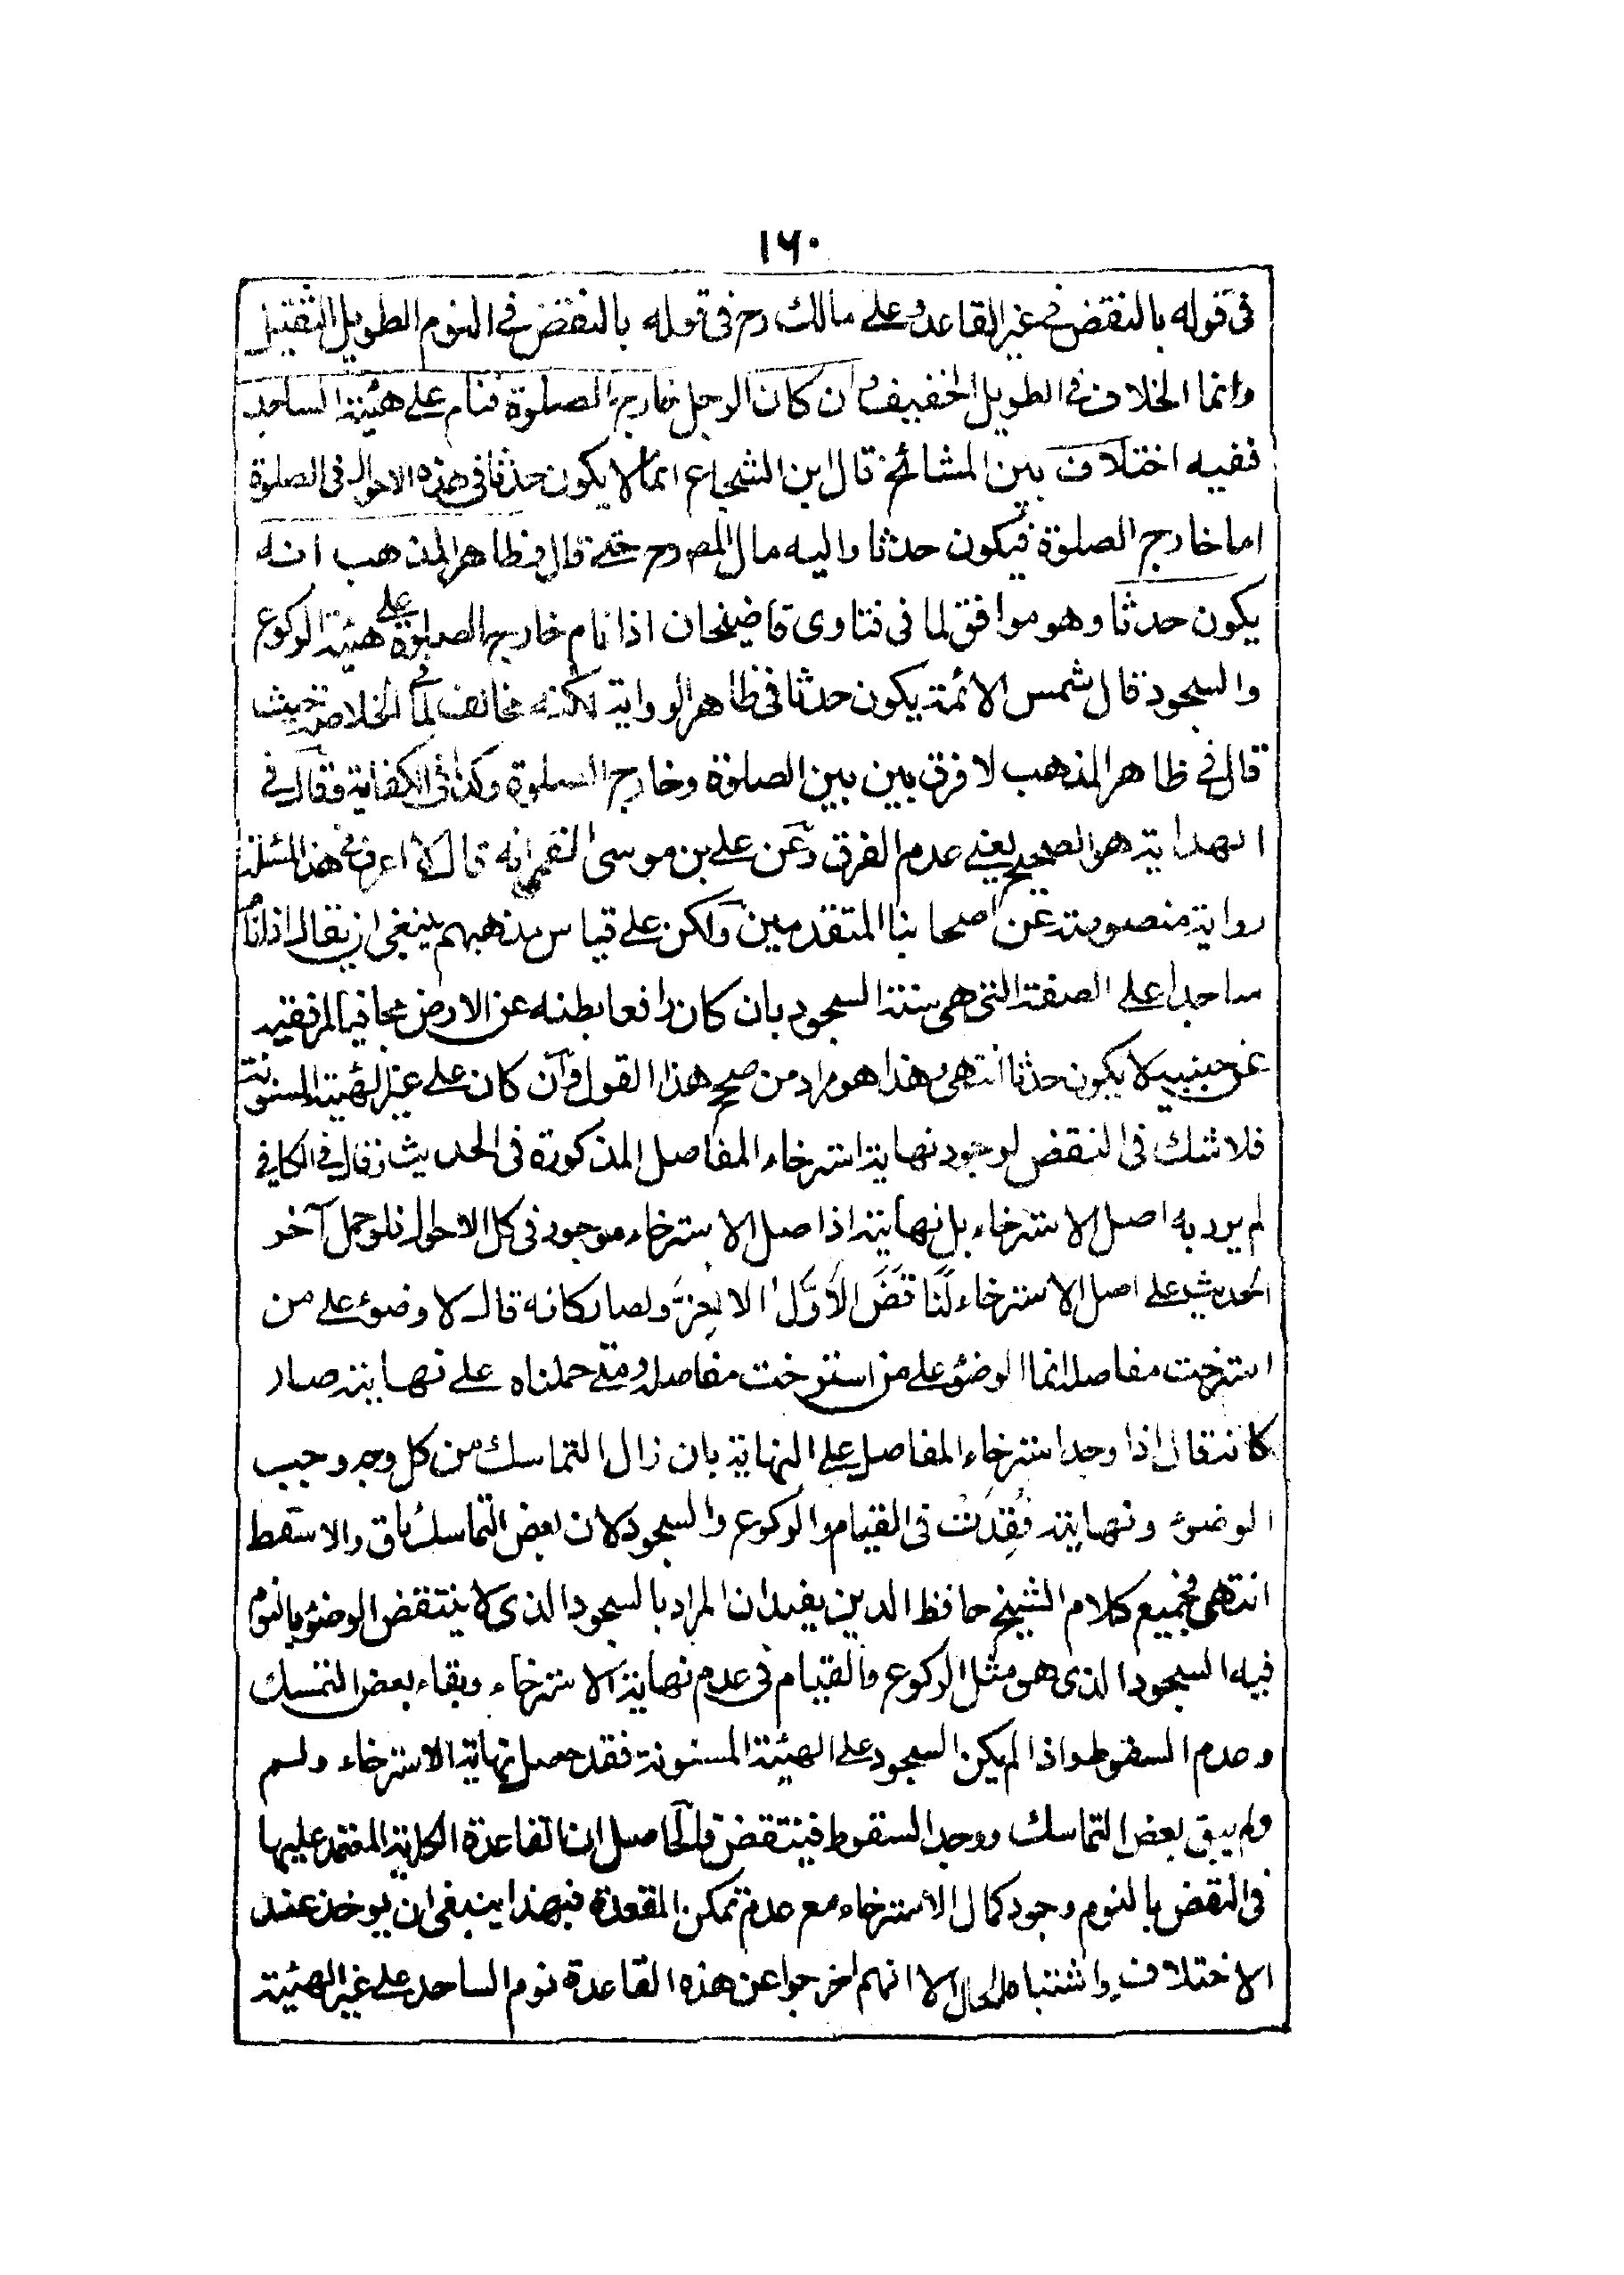 ١٦٠
فى قوله بالنقض فى غير القاعد وعلى مالك رح فى قوله بالنقض فى النوم الطويل الثقيل
وانما الخلاف فى الطويل الخفيف وان كان الرجل خارج الصلوة فنام على هيئة الساجد
ففيه اختلاف بين المشائخ قال ابن الشجاع انما لا يكون حدثا فى هذه الاحوال فى الصلوة
اما خارج الصلوة فيكون حدثا واليه مال المص رح حتى قال فى ظاهر المذهب انه
يكون حدثا وهو موافق لما فى فتاوى قاضيخان اذا نام خارج الصلوة على هيئة الركوع
والسجود قال شمس الائمة يكون حدثا فى ظاهر الرواية لكنه مخالف لما فى الخلاصة حيث
قال فى ظاهر المذهب لا فرق بين بين الصلوة وخارج الصلوة وكذا فى الكفاية وقال فى
الهداية هو الصحيح يعنى عدم الفرق وعن على بن موسى القمى انه قال لا اعرف فى هذا المسئلة
رواية منصوصة عن اصحابنا المتقدمين ولكن على قياس مذهبهم ينبغى ان يقال اذا نام
ساجدا على الصفة التى هى سنة السجود بان كان رافعا بطنه عن الارض مجافيا لمرفقيه
عن جنبيه لا يكون حدثا انتهى وهذا هو مراد من صحح هذا القول وان كان على غير الهيئة المسنونة
فلا شك فى النقض لوجود نهاية استرخاء المفاصل المذكورة فى الحديث وقال فى الكافى
لم يرد به اصل الاسترخاء بل نهايته اذ اصل الاسترخاء موجود فى كل الاحوال فلو حمل آخر
الحديث على اصل الاسترخاء لَنَاقَضَ الاَوَّلُ الاٰخِرَ ولصار كانه قال لا وضوء على من
استرخت مفاصله انما الوضوء على من استرخت مفاصله ومتى حملناه على نهايته صار
كانه قال اذا وجد استرخاء المفاصل على النهاية بان زال التماسك من كل وجه وجب
الوضوء ونهايته فُقِدَتْ فى القيام والركوع والسجود لان بعض التماسك باق والا سقط
انتهى فجميع كلام الشيخ حافظ الدين يفيد ان المراد بالسجود الذى لا ينتقض الوضوء بالنوم
فيه السجود الذى هو مثل الركوع والقيام فى عدم نهاية الاسترخاء وبقاء بعض التمسك
وعدم السقوط واذا لم يكن السجود على الهيئة المسنونة فقد حصل نهاية الاسترخاء ولم
ولم يبق بعض التماسك ووجد السقوط فينتقض والحاصل ان القاعدة الكلية المعتمد عليها
فى النقض بالنوم وجود كمال الاسترخاء مع عدم تمكن المقعدة فبهذا ينبغى ان يوخذ عند
الاختلاف واشتباه الحال الا انهم اخرجوا عن هذه القاعدة نوم الساجد على غير الهيئة